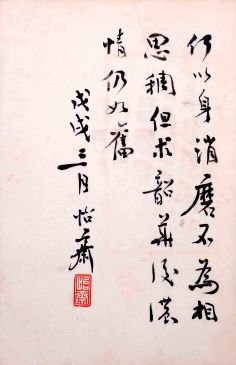 何以身消磨不為相
思稠但求韶華淺濃
情仍如舊
戊戌三月怡齋
怡齋